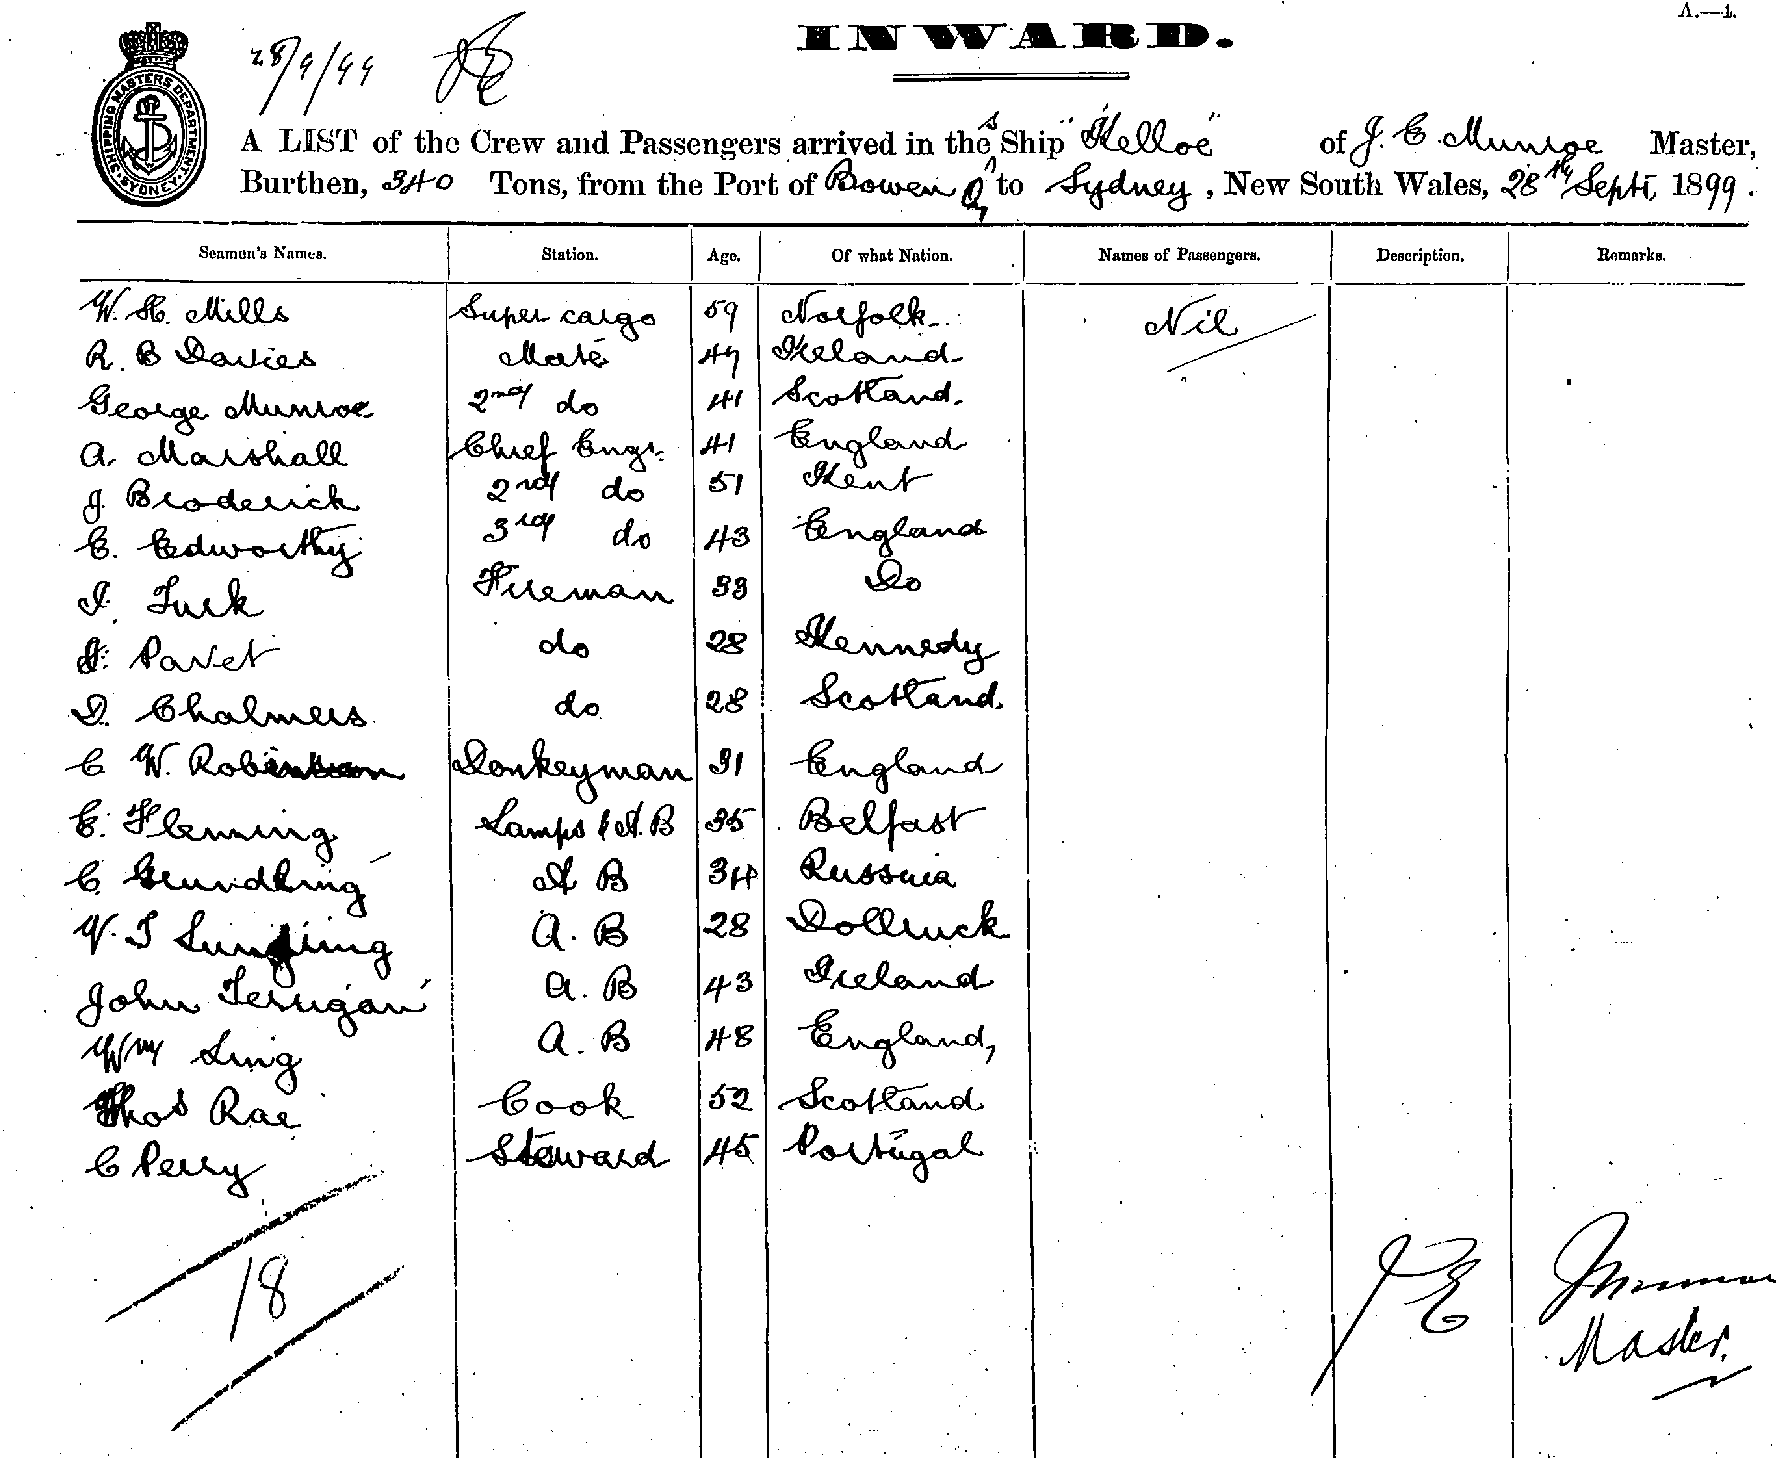 A.—1.
INWARD.
28/9/99 JE
SHIPPING MASTERS DEPARTMENT. SYDNEY.
A LIST of the Crew and Passengers arrived in the S Ship "Kelloe" of J. E. Munroe Master,
Burthen, 340 Tons, from the Port of Bowen Q to Sydney, New South Wales, 28th Sept, 1899.
Seamen's Names. Station. Age. Of what Nation. Names of Passengers. Description. Remarks.
W. H. Mills Super cargo 59 Norfolk Nil
R. B Davies Mate 47 Ireland
George Munroe 2nd do 41 Scotland.
A. Marshall Chief Engr. 41 England
J. Broderick 2nd do 51 Kent
E. Edworthy 3rd do 43 England
Turk Fireman 33 Do
Pavet do 28 Kennedy
D. Chalmers do 28 Scotland.
C W. Donkeyman 31 England
E. Fleming Lamps & A.B 35 Belfast
C. Grundling A B 34 Russia
W. A. B 28
John A. B 43 Ireland
Wm Ling A. B 48 England,
Thos Rae Cook 52 Scotland
C Perry Steward 45 Portugal
18
JE
Master.